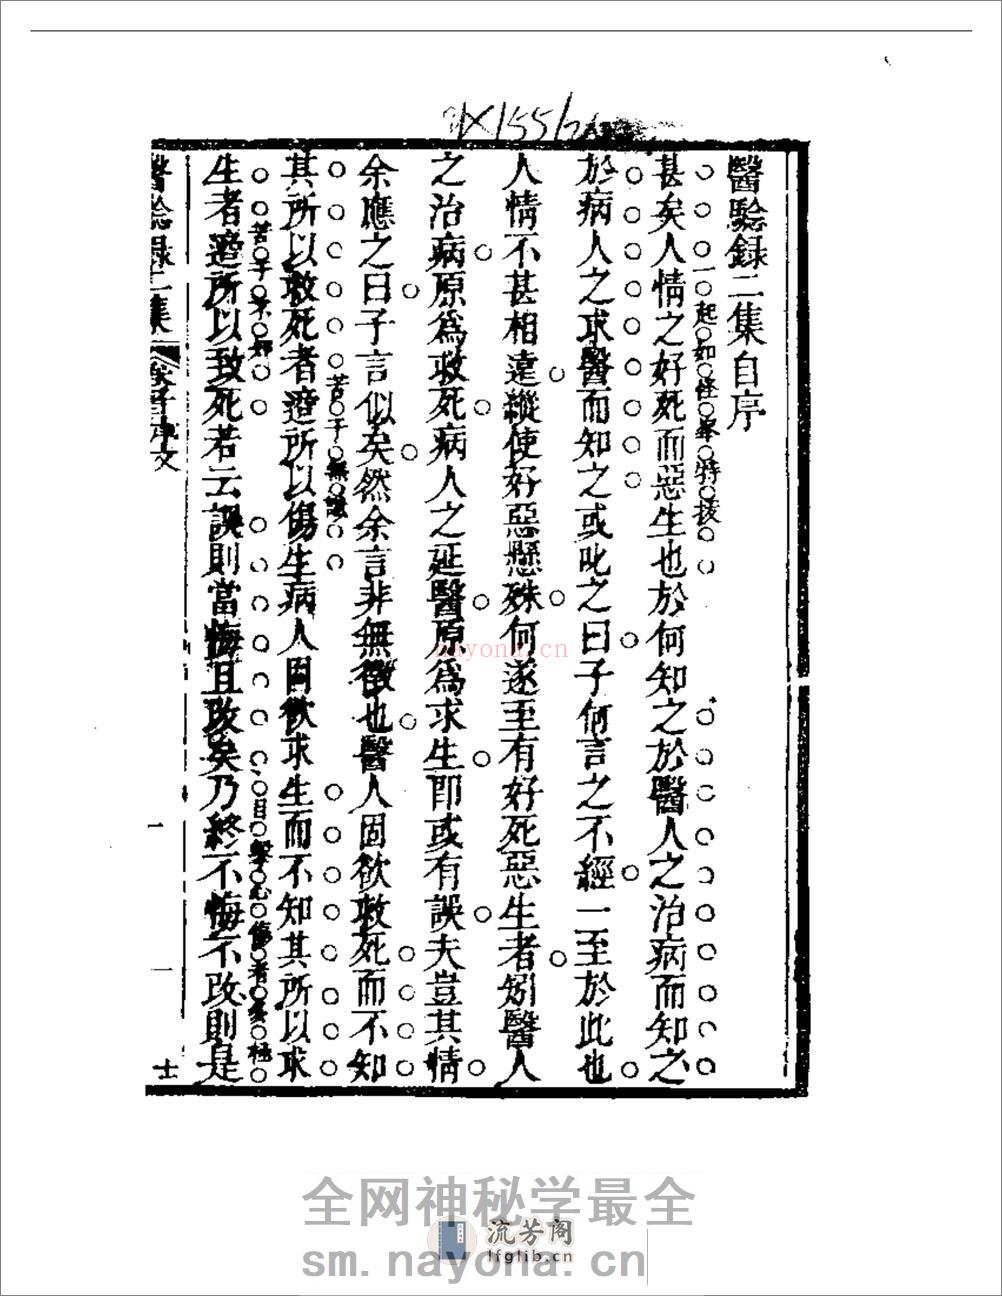 醫驗録二集自序
甚矣人情之好死而惡生也於何知之於醫人之治病而知之
一起如怪峯特拔
於病人之求醫而知之或叱之曰子何言之不經一至於此也
人情不甚相遠縱使好惡懸殊何遂至有好死惡生者矧醫人
之治病原爲救死病人之延醫原爲求生即或有誤夫豈其情
余應之曰子言似矣然余言非無徵也醫人固欲救死而不知
其所以救死者適所以傷生病人固欲求生而不知其所以求
苦于無識
生者適所以致死若云誤則當悔且改矣乃終不悔不改則是
苦于不知
目擊心傷
醫驗録二集
序文
一
全网神秘学最全
流芳阁
lfglib.cn
sm.nayona.cn
nayona.cn